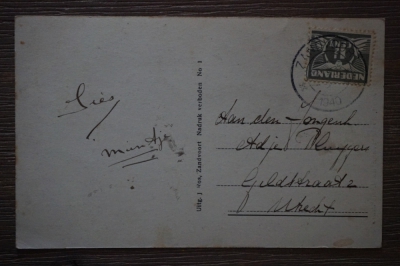 Lies
muntje
Uitg. J. Vos, Zandvoort Nadruk verboden No 1
NEDERLAND
CENT
Aan den Jongenh
Adje
Geldstraat 2
Utrecht